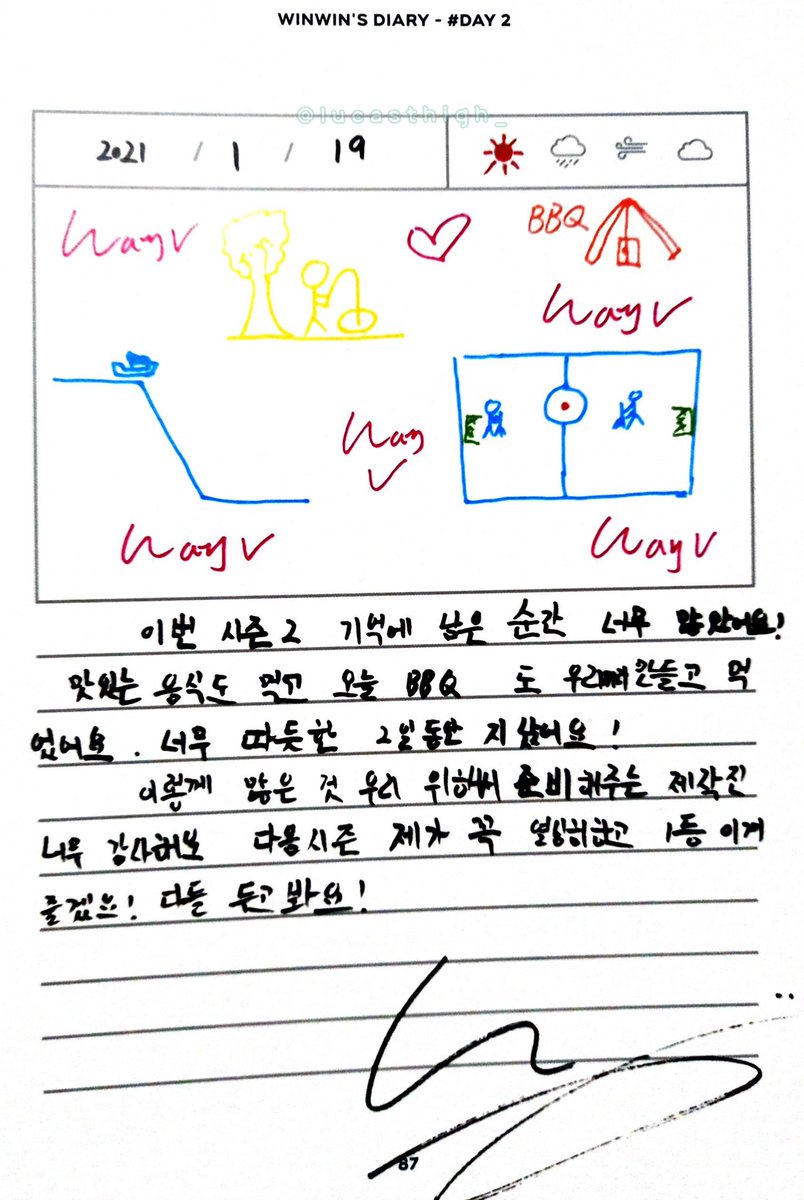 WINWIN'S DIARY - #DAY 2
@lucasthigh_
2021 / 1 / 19
WayV
BBQ
WayV
Way
V
WayV
WayV
이번 시즌2 기억에 남은 순간 너무 많았어요!
맛있는 음식도 먹고 오늘 BBQ 도 우리 만들고 먹
었어요. 너무 따듯한 2일동안 지냈어요!
이렇게 많은 것 우리 위해써 준비해주는 제작진
너무 감사해보 다음시즌 제가 꼭 열심히하고 1등 이게
들겠요! 다들 듣고봐요!
87